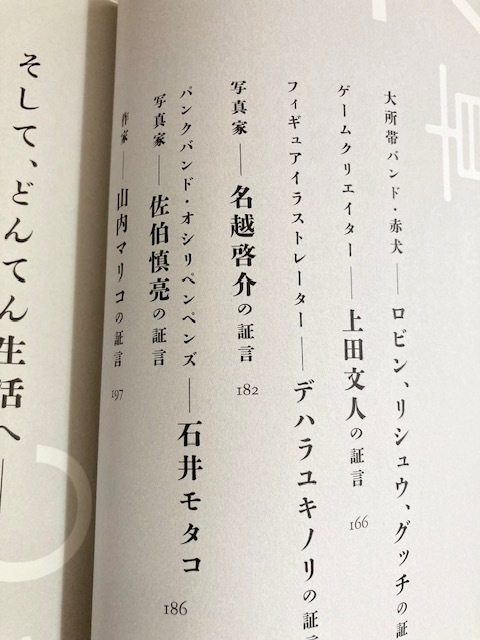 大所帯バンド・赤犬――ロビン、リシュウ、グッチの証
ゲームクリエイター――上田文人の証言 166
フィギュアイラストレーター――デハラユキノリの証
写真家――名越啓介の証言 182
パンクバンド・オシリペンペンズ――石井モタコ 186
写真家――佐伯慎亮の証言
作家――山内マリコの証言 197
そして、どんてん生活へ――